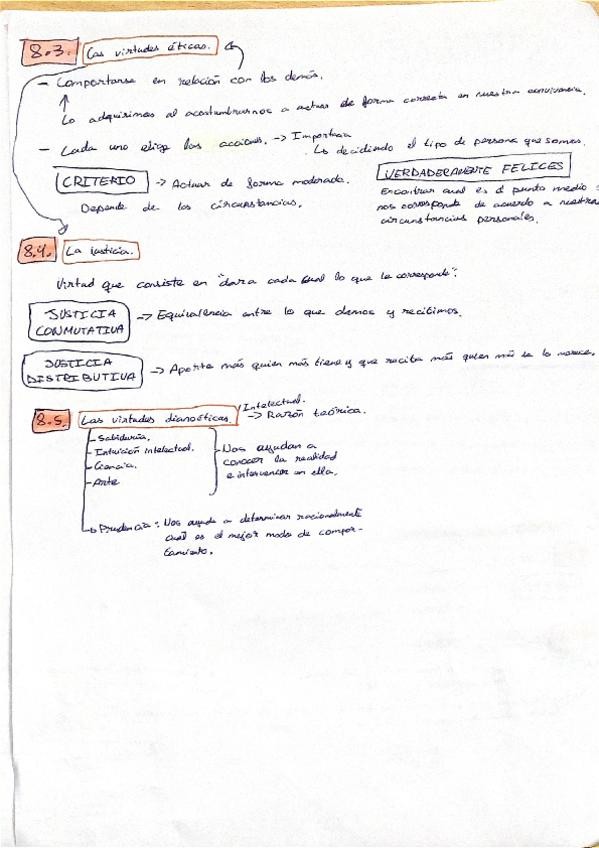 8.3. Las virtudes éticas.
- Comportarse en relación con los demás.
Lo adquirimos al acostumbrarnos a actuar de forma correcta en nuestra convivencia.
- Cada uno elige las acciones. -> Importancia
Lo decidiendo el tipo de persona que somos.
CRITERIO -> Actuar de forma moderada.
Depende de las circunstancias.
VERDADERAMENTE FELICES
Encontrar cual es el punto medio
nos corresponde de acuerdo a nuestras
circunstancias personales.
8.4. La justicia.
Virtud que consiste en "dar a cada cual lo que le corresponde".
JUSTICIA
CONMUTATIVA -> Equivalencia entre lo que demos y recibimos.
JUSTICIA
DISTRIBUTIVA -> Aporte más quien más tiene y que reciba más quien más se lo merece.
8.5. Las virtudes dianoéticas. Intelectual.
-> Razón teórica.
- Sabiduría.
- Intuición intelectual.
- Ciencia.
- Arte
Nos ayudan a
conocer la realidad
e intervenir en ella.
-> Prudencia: Nos ayuda a determinar racionalmente
cuál es el mejor modo de compor-
tamiento.